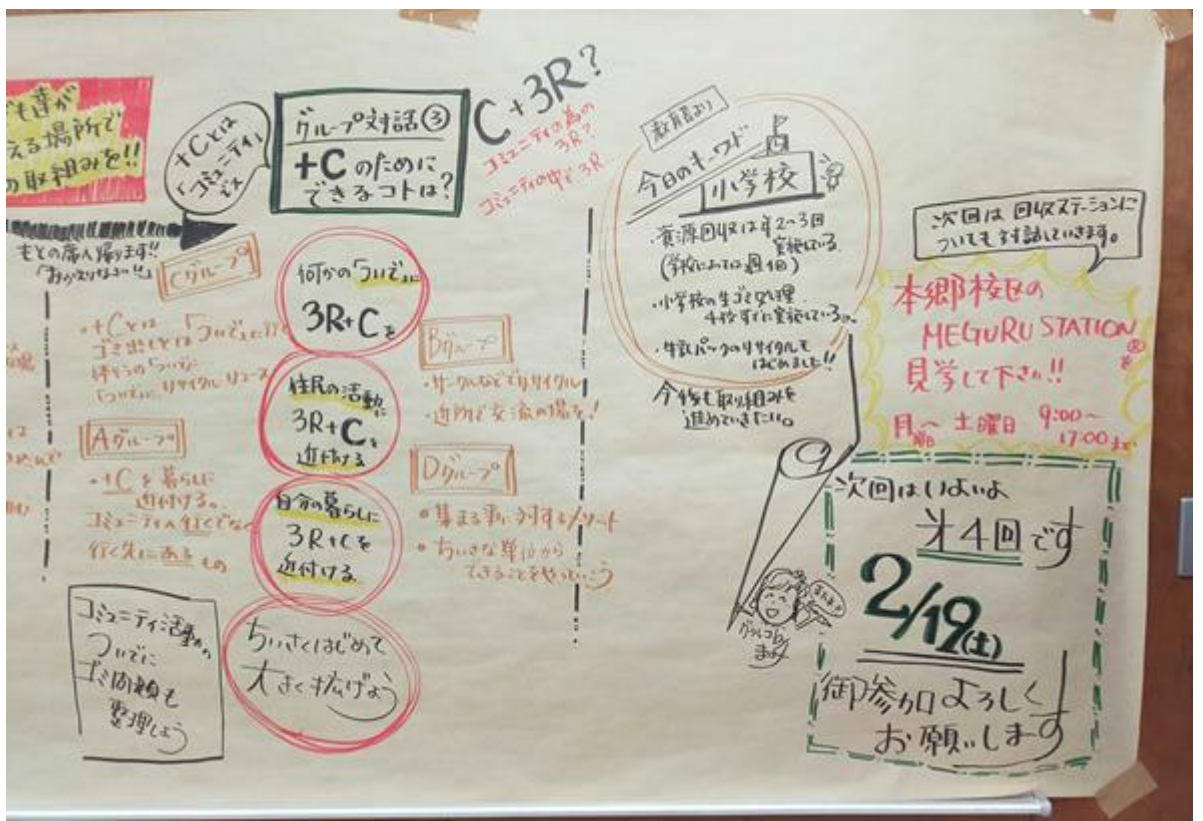 も達が
える場所で
の取組みを!!
+Cとは
「コミュニティ」
でス
グループ対話③
+Cのために
できるコトは?
C+3R?
コミュニティの為の
3R?
コミュニティの中で3R
もとの席へ帰ります!!
「おかえりなさい!!」
Cグループ
・+Cとは
ゴミ出しとは「ついで」に行く
「ついで」に リサイクル リユース
Aグループ
・+Cを暮らしに
近付ける。
コミュニティへ行くでなく
行く先にあるもの
コミュニティ活動の
ついでに
ゴミ問題も
整理しよう
何かの「ついで」に
3R+Cを
住民の活動に
3R+Cを
近付ける
自分の暮らしに
3R+Cを
近付ける
ちいさくはじめて
大きく拡げよう
Bグループ
・サークルなどでリサイクル
・近所で交流の場を!
Dグループ
・集まる事に対するメリット
・ちいさな単位から
できることをやっていこう
教育長より
今日のキーワード
小学校
・資源回収は年2~3回
実施している
(学校によっては週1回)
・小学校の生ゴミ処理
・牛乳パックのリサイクルも
はじめました!!
今後も取り組みを
進めていきたい。
次回は回収ステーションに
ついても対話していきます。
本郷校区の
MEGURU STATION®を
見学して下さい!!
月曜~土曜日 9:00~
17:00まで
次回はいよいよ
第4回です
2/19(土)
御参加よろしく
お願いします